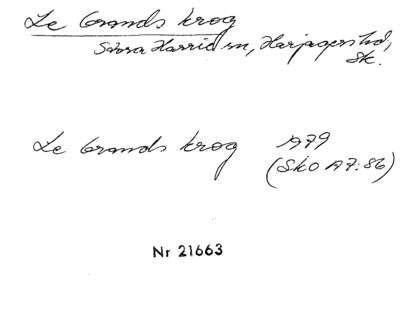 Le Grands krog
Stora Harrie sn, Harjagers hd,
Sk.
Le Grands krog 1779
(SkO 17:86)
Nr 21663